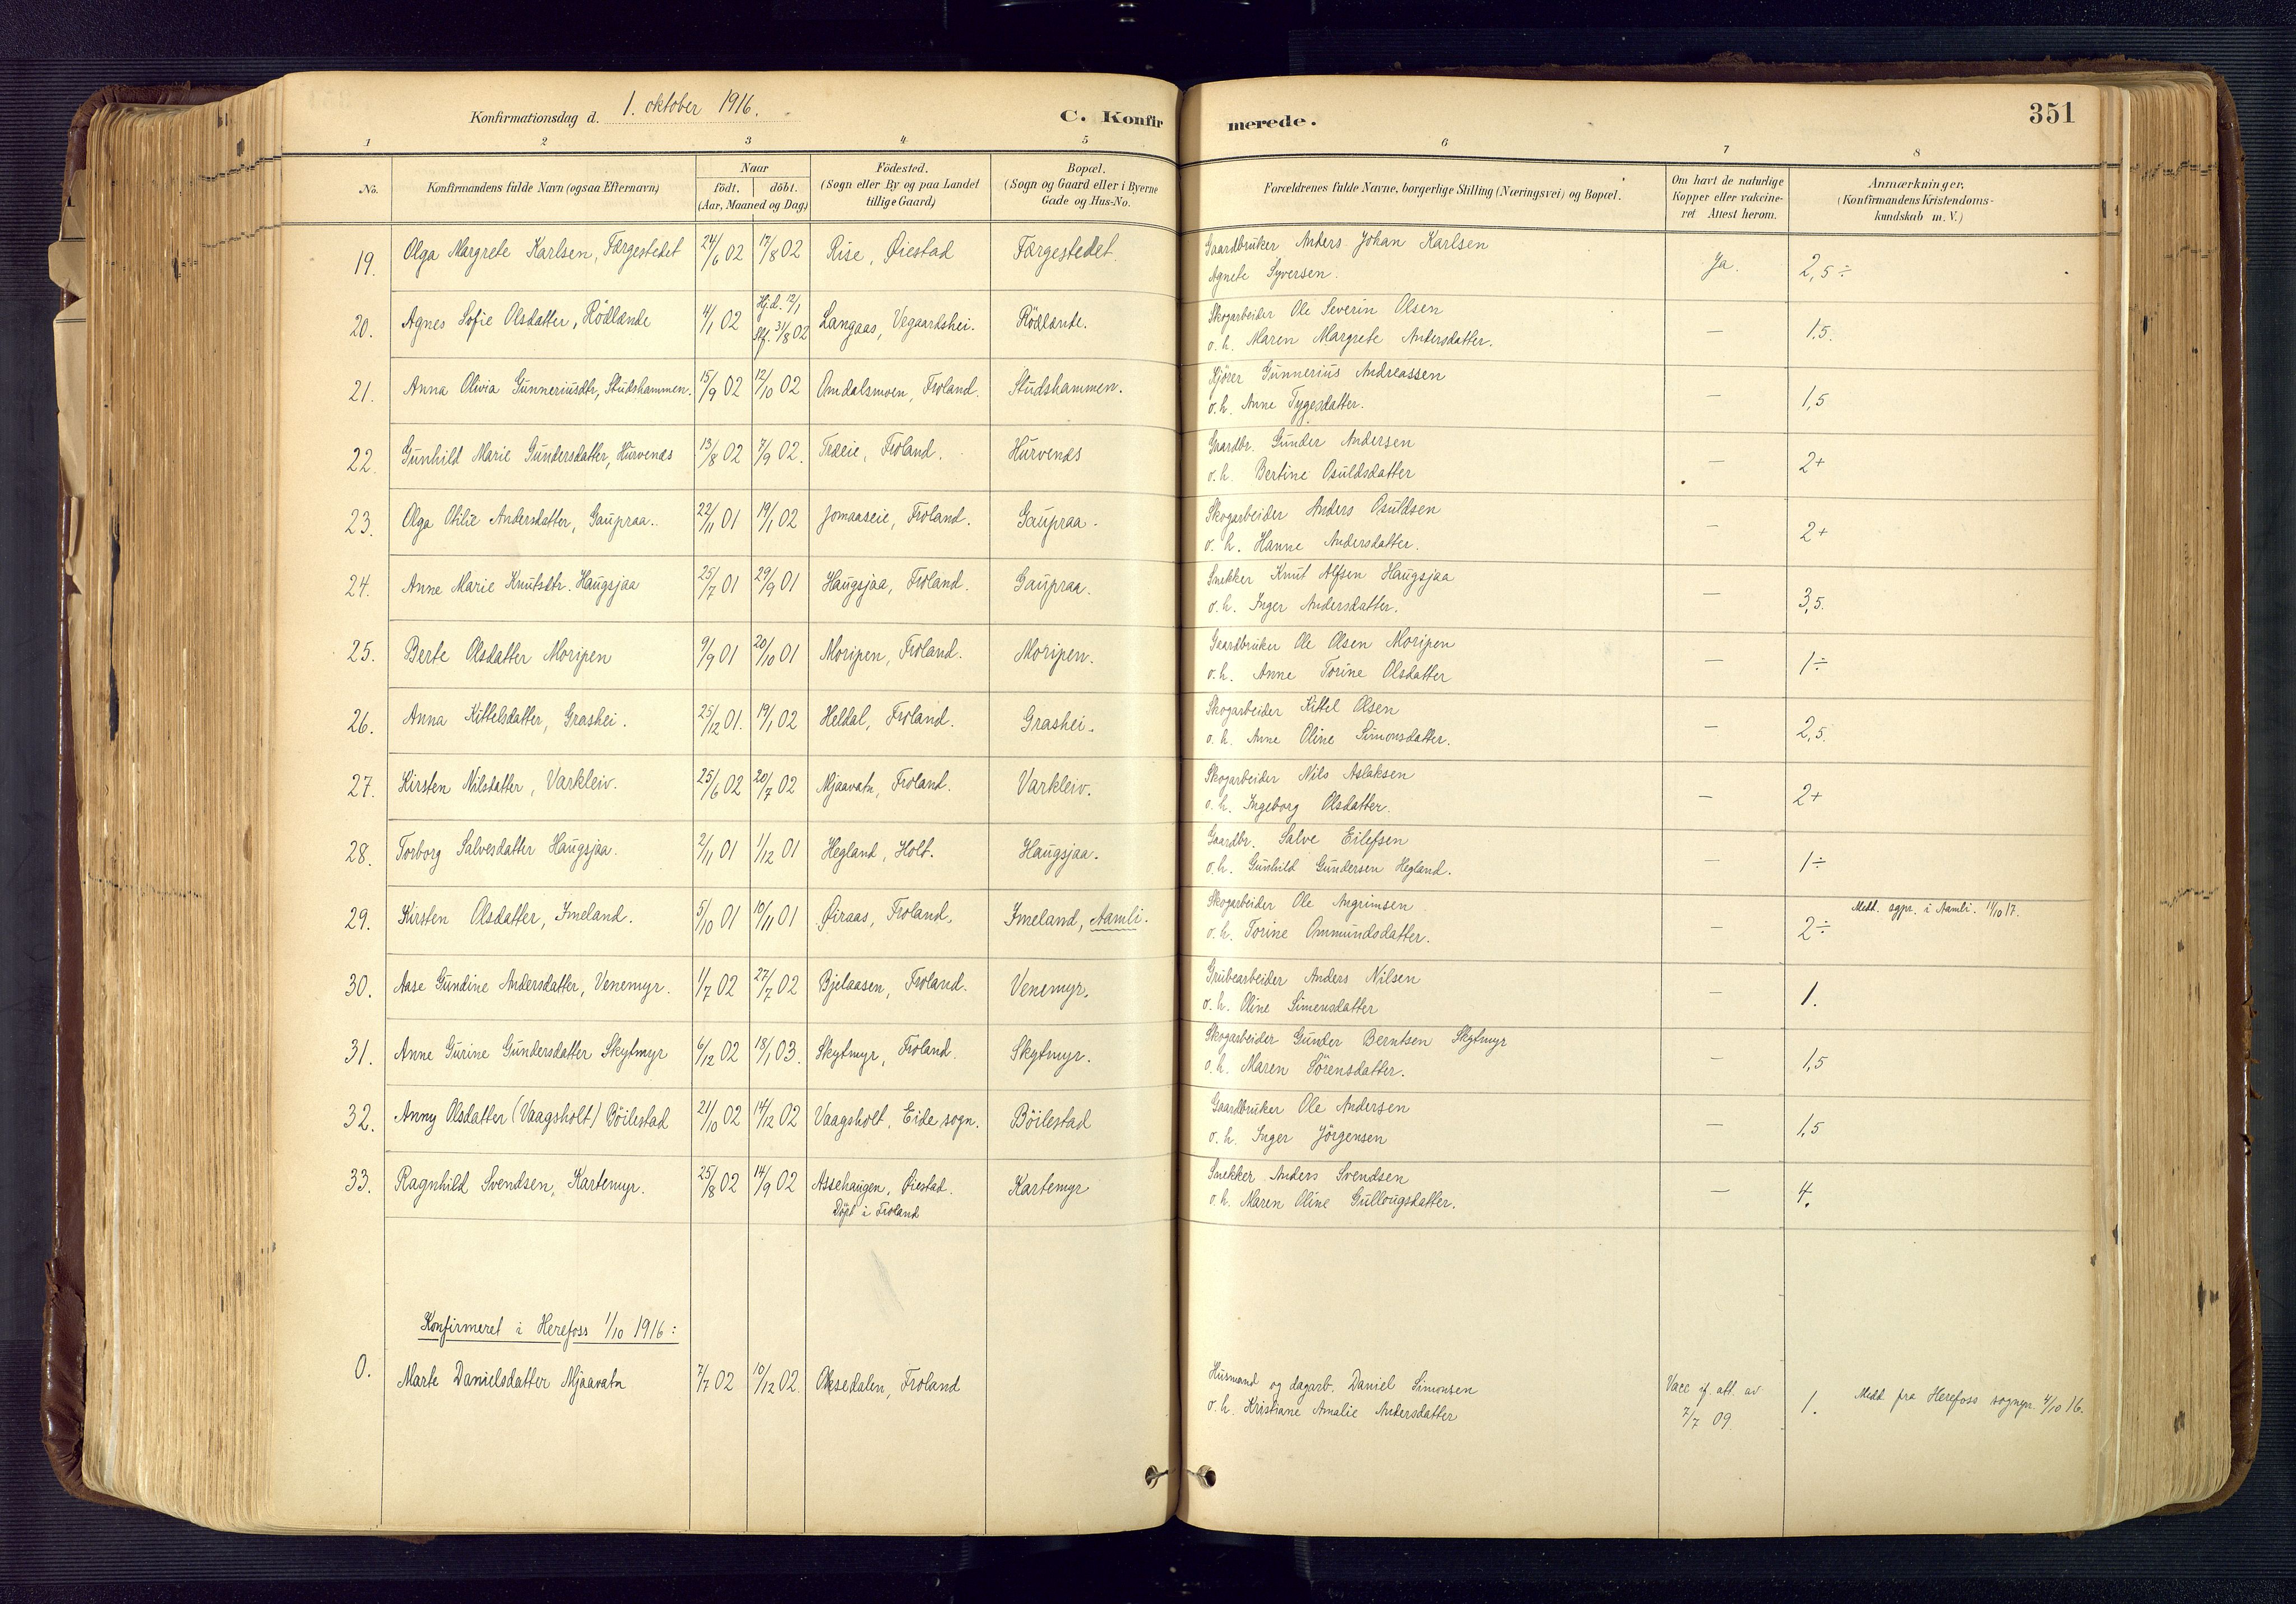 Konfirmationsdag d. 1. oktober 1916.
C. Konfirmerede.
351
1 2 3 4 5 6 7 8
No.
Konfirmandens fulde Navn (ogsaa Efternavn)
Naar
födt. döbt.
(Aar, Maaned og Dag)
Födested.
(Sogn eller By og paa Landet
tillige Gaard)
Bopæl.
(Sogn og Gaard eller i Byerne
Gade og Hus-No.
Forældrenes fulde Navne, borgerlige Stilling (Næringsvei) og Bopæl.
Om havt de naturlige
Kopper eller vakcine-
ret Attest herom.
Anmærkninger.
(Konfirmandens Kristendoms-
kundskab m. V.)
19. Olga Margrete Karlsen, Færgestedet 24/6 02 17/8 02 Rise, Øiestad Færgestedet. Gaardbruker Anders Johan Karlsen
Agnete Syversen. Ja. 2,5 ÷
20. Agnes Sofie Olsdatter, Rödlande 4/1 02 Hj.d. 12/1
Stf. 31/8 02 Langaas, Vegaardshei. Rödlande. Skogarbeider Ole Severin Olsen
o. h. Maren Margrete Andersdatter. — 1,5.
21. Anna Olivia Gunneriusdtr, Studshammen. 15/9 02 12/10 02 Omdalsmoen, Froland. Studshammen. Kjörer Gunnerius Andreassen
o. h. Anne Tygesdatter. — 1,5
22. Gunhild Marie Gundersdatter, Hurvenes 13/8 02 7/9 02. Træie, Froland. Hurvenes Gaardbr. Gunder Andersen
o. h. Bertine Osuldsdatter — 2+
23. Olga Otilie Andersdatter, Gaupraa. 22/11 01 19/1 02 Jomaaseie, Froland. Gaupraa. Skogarbeider Anders Osuldsen
o. h. Hanne Andersdatter. — 2+
24. Anne Marie Knutsdtr. Haugsjaa 25/7 01 29/9 01 Haugsjaa, Froland. Gaupraa. Snekker Knut Alfsen Haugsjaa
o. h. Inger Andersdatter. — 3,5.
25. Berte Olsdatter Moripen 9/9 01 20/10 01 Moripen, Froland. Moripen. Gaardbruker Ole Olsen Moripen
o. h. Anne Torine Olsdatter — 1 ÷
26. Anna Kittelsdatter, Grashei. 25/12 01. 19/1 02 Heldal, Froland. Grashei. Skogarbeider Kittel Olsen
o. h. Anne Oline Simonsdatter. — 2,5.
27. Kirsten Nilsdatter, Varkleiv. 25/6 02 20/7 02 Mjaavatn, Froland. Varkleiv. Skogarbeider Nils Aslaksen
o. h. Ingeborg Olsdatter. — 2+
28. Torborg Salvesdatter Haugsjaa. 2/11 01 1/12 01 Hegland, Holt. Haugsjaa. Gaardbr. Salve Eilefsen
o. h. Gunhild Gundersen Hegland. — 1 ÷
29. Kirsten Olsdatter, Imeland. 5/10 01 10/11 01 Øiraas, Froland. Imeland, Aamli. Skogarbeider Ole Angrimsen
o. h. Torine Ommundsdatter. — 2 ÷ Medd. sgpr. i Aamli. 11/10 17.
30. Aase Gundine Andersdatter, Venemyr. 1/7 02 27/7 02 Bjelaasen, Froland. Venemyr. Grubearbeider Anders Nilsen
o. h. Oline Simensdatter — 1.
31. Anne Gurine Gundersdatter Skytmyr 6/12 02 18/1 03. Skytmyr, Froland. Skytmyr. Skogarbeider Gunder Berntsen Skytmyr
o. h. Maren Sörensdatter. — 1,5
32. Anny Olsdatter (Vaagsholt) Böilestad 21/10 02 14/12 02 Vaagsholt, Eide sogn. Böilestad Gaardbruker Ole Andersen
o. h. Inger Jörgensen — 1,5
33. Ragnhild Svendsen, Kartemyr. 25/8 02 14/9 02 Assehaugen, Øiestad.
Döpt i Froland Kartemyr Snekker Anders Svendsen
o. h. Maren Oline Gullougsdatter. — 4.
Konfirmeret i Herefoss 1/10 1916:
0. Marte Danielsdatter Mjaavatn 7/7 02 10/12 02. Oksedalen, Froland Husmand og dagarb. Daniel Simonsen
o. h. Kristiane Amalie Andersdatter Vacc if. att. av
7/7 09. 1. Medd fra Herefoss sognepr. 4/10 16.